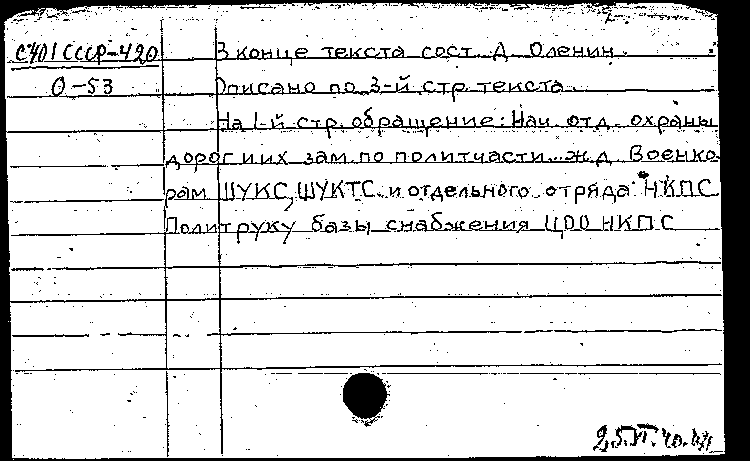 С401 СССР-420 В конце текста сост. Д. Оленин.
О-53 Описано по 3-й стр. текста
На 1-й стр. обращение: Нач. отд. охраны
дорог и их зам. по политчасти ж.д. Военко-
рам ШУКС, ШУКТС и отдельного отряда НКПС
Политруку базы снабжения ЦОО НКПС
25.VI.40.